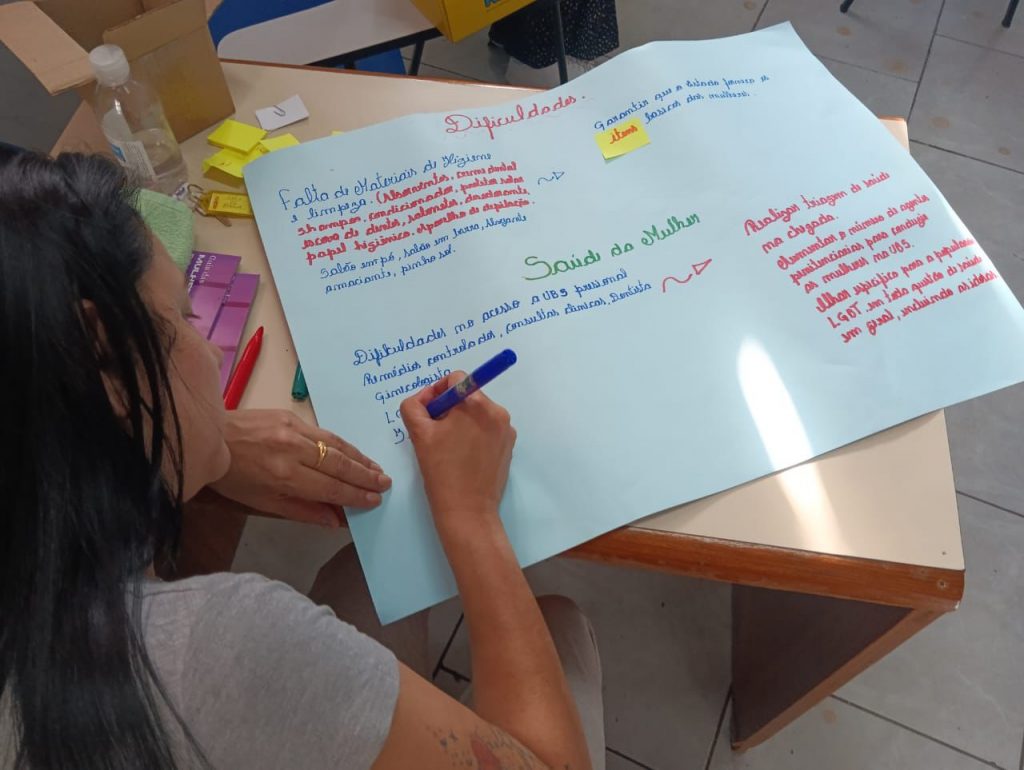 Dificuldades.
Falta de Materiais de Higiene
e limpeza. (Absorventes, creme dental
shampoo, condicionador, prestobarba
escova de dentes, sabonetes, desodorante,
papel higiênico. Aparelho de depilação.
Sabão em pó, sabão em barra,
amaciante, pinho sol.
Garantir que o Estado forneça os
itens básicos das mulheres.
Saúde da Mulher
Dificuldades no acesso a UBS prisional
Remédios controlados, consultas clínicas, Dentista
Ginecologista
Realizar triagem de saúde
na chegada.
Aumentar o número de agentes
penitenciárias para condução
as mulheres na UBS.
olhar específico para a população
LGBT em toda questões de saúde
em geral, incluindo